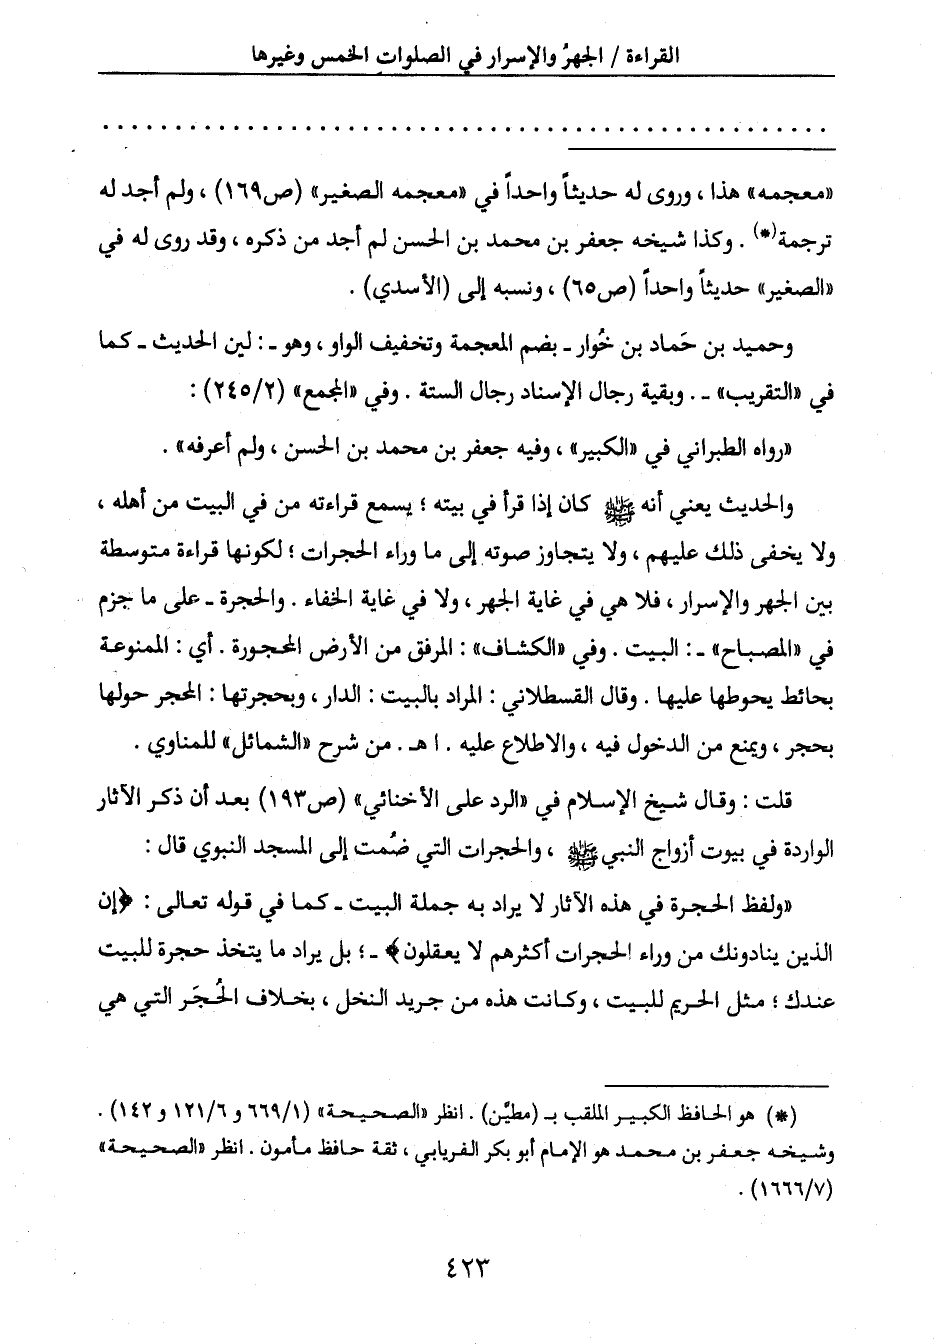 القراءة / الجهرُ والإسرار في الصلوات الخمس وغيرها
«معجمه» هذا ، وروى له حديثاً واحداً في «معجمه الصغير» (ص١٦٩) ، ولم أجد له
ترجمة(*) . وكذا شيخه جعفر بن محمد بن الحسن لم أجد من ذكره ، وقد روى له في
«الصغير» حديثاً واحداً (ص٦٥) ، ونسبه إلى (الأسدي) .
وحميد بن حَماد بن خُوار ـ بضم المعجمة وتخفيف الواو ، وهو ـ : لين الحديث ـ كما
في «التقريب» ـ . وبقية رجال الإسناد رجال الستة . وفي «المجمع» (٢٤٥/٢) :
«رواه الطبراني في «الكبير» ، وفيه جعفر بن محمد بن الحسن ، ولم أعرفه» .
والحديث يعني أنه ﷺ كان إذا قرأ في بيته ؛ يسمع قراءته من في البيت من أهله ،
ولا يخفى ذلك عليهم ، ولا يتجاوز صوته إلى ما وراء الحجرات ؛ لكونها قراءة متوسطة
بين الجهر والإسرار ، فلا هي في غاية الجهر ، ولا في غاية الخفاء . والحجرة ـ على ما جزم
في «المصباح» ـ : البيت . وفي «الكشاف» : المرفق من الأرض المحجورة . أي : الممنوعة
بحائط يحوطها عليها . وقال القسطلاني : المراد بالبيت : الدار ، وبحجرتها : المحجر حولها
بحجر ، ويمنع من الدخول فيه ، والاطلاع عليه . ا هـ . من شرح «الشمائل» للمناوي .
قلت : وقال شيخ الإسلام في «الرد على الأخنائي» (ص١٩٣) بعد أن ذكر الآثار
الواردة في بيوت أزواج النبي ﷺ ، والحجرات التي ضُمت إلى المسجد النبوي قال :
«ولفظ الحجرة في هذه الآثار لا يراد به جملة البيت ـ كما في قوله تعالى : ﴿إن
الذين ينادونك من وراء الحجرات أكثرهم لا يعقلون﴾ ـ ؛ بل يراد ما يتخذ حجرة للبيت
عندك ؛ مثل الحريم للبيت ، وكانت هذه من جريد النخل ، بخلاف الحُجَر التي هي
(*) هو الحافظ الكبير الملقب بـ (مطيَّن) . انظر «الصحيحة» (٦٦٩/١ و ١٢١/٦ و ١٤٢) .
وشيخه جعفر بن محمد هو الإمام أبو بكر الفريابي ، ثقة حافظ مأمون . انظر «الصحيحة»
(١٦٦٦/٧) .
٤٢٣